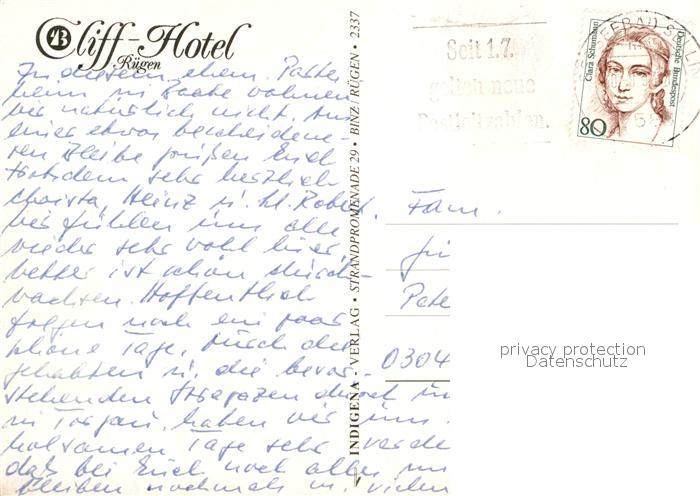 Cliff-Hotel
Rügen
In diesem ehem. Palte
heim in Sache wohnen
wir natürlich nicht. Aus
einer etwas bescheidene-
ren Bleibe grüßen Euch
trotzdem sehr herzlich
Christa, Heinz u. kl. Robert.
Wir fühlen uns alle
wieder sehr wohl hier,
Wetter ist schön
wachsen. Hoffentlich
folgen noch ein paar
schöne Tage, durch die
gehabten u. die bevor-
stehenden Strapazen
in Torgau, haben wir
Tage sehr
daß bei Euch noch alles
bleiben nochmals m. vielen
INDIGENA - VERLAG • STRANDPROMENADE 29 • BINZ / RÜGEN • 2337
Seit 1.7.
gelten neue
Postleitzahlen.
Clara Schumann
Deutsche Bundespost
80
Fam.
Pate
0304
privacy protection
Datenschutz